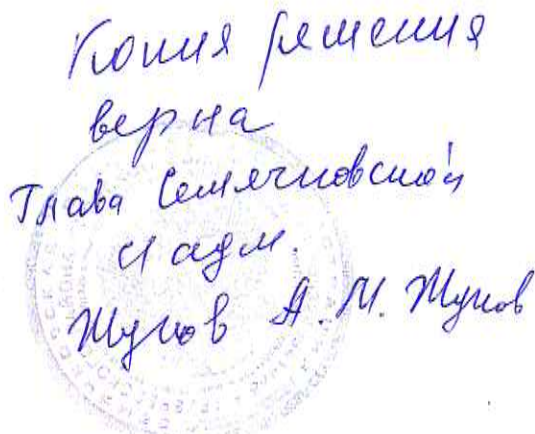 Копия решения
верна
Глава Семячковской
с/адм.
Жуков А. М. Жуков